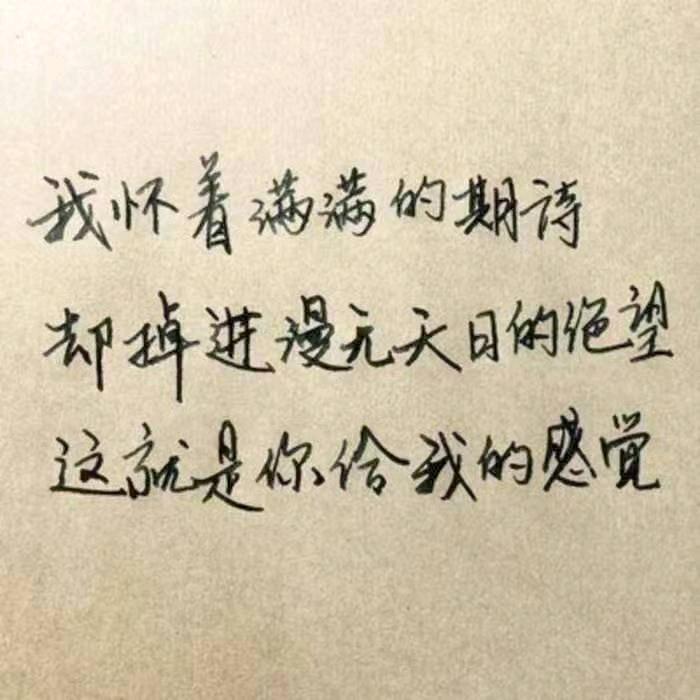 我怀着满满的期诗
却掉进漫无天日的绝望
这就是你给我的感觉